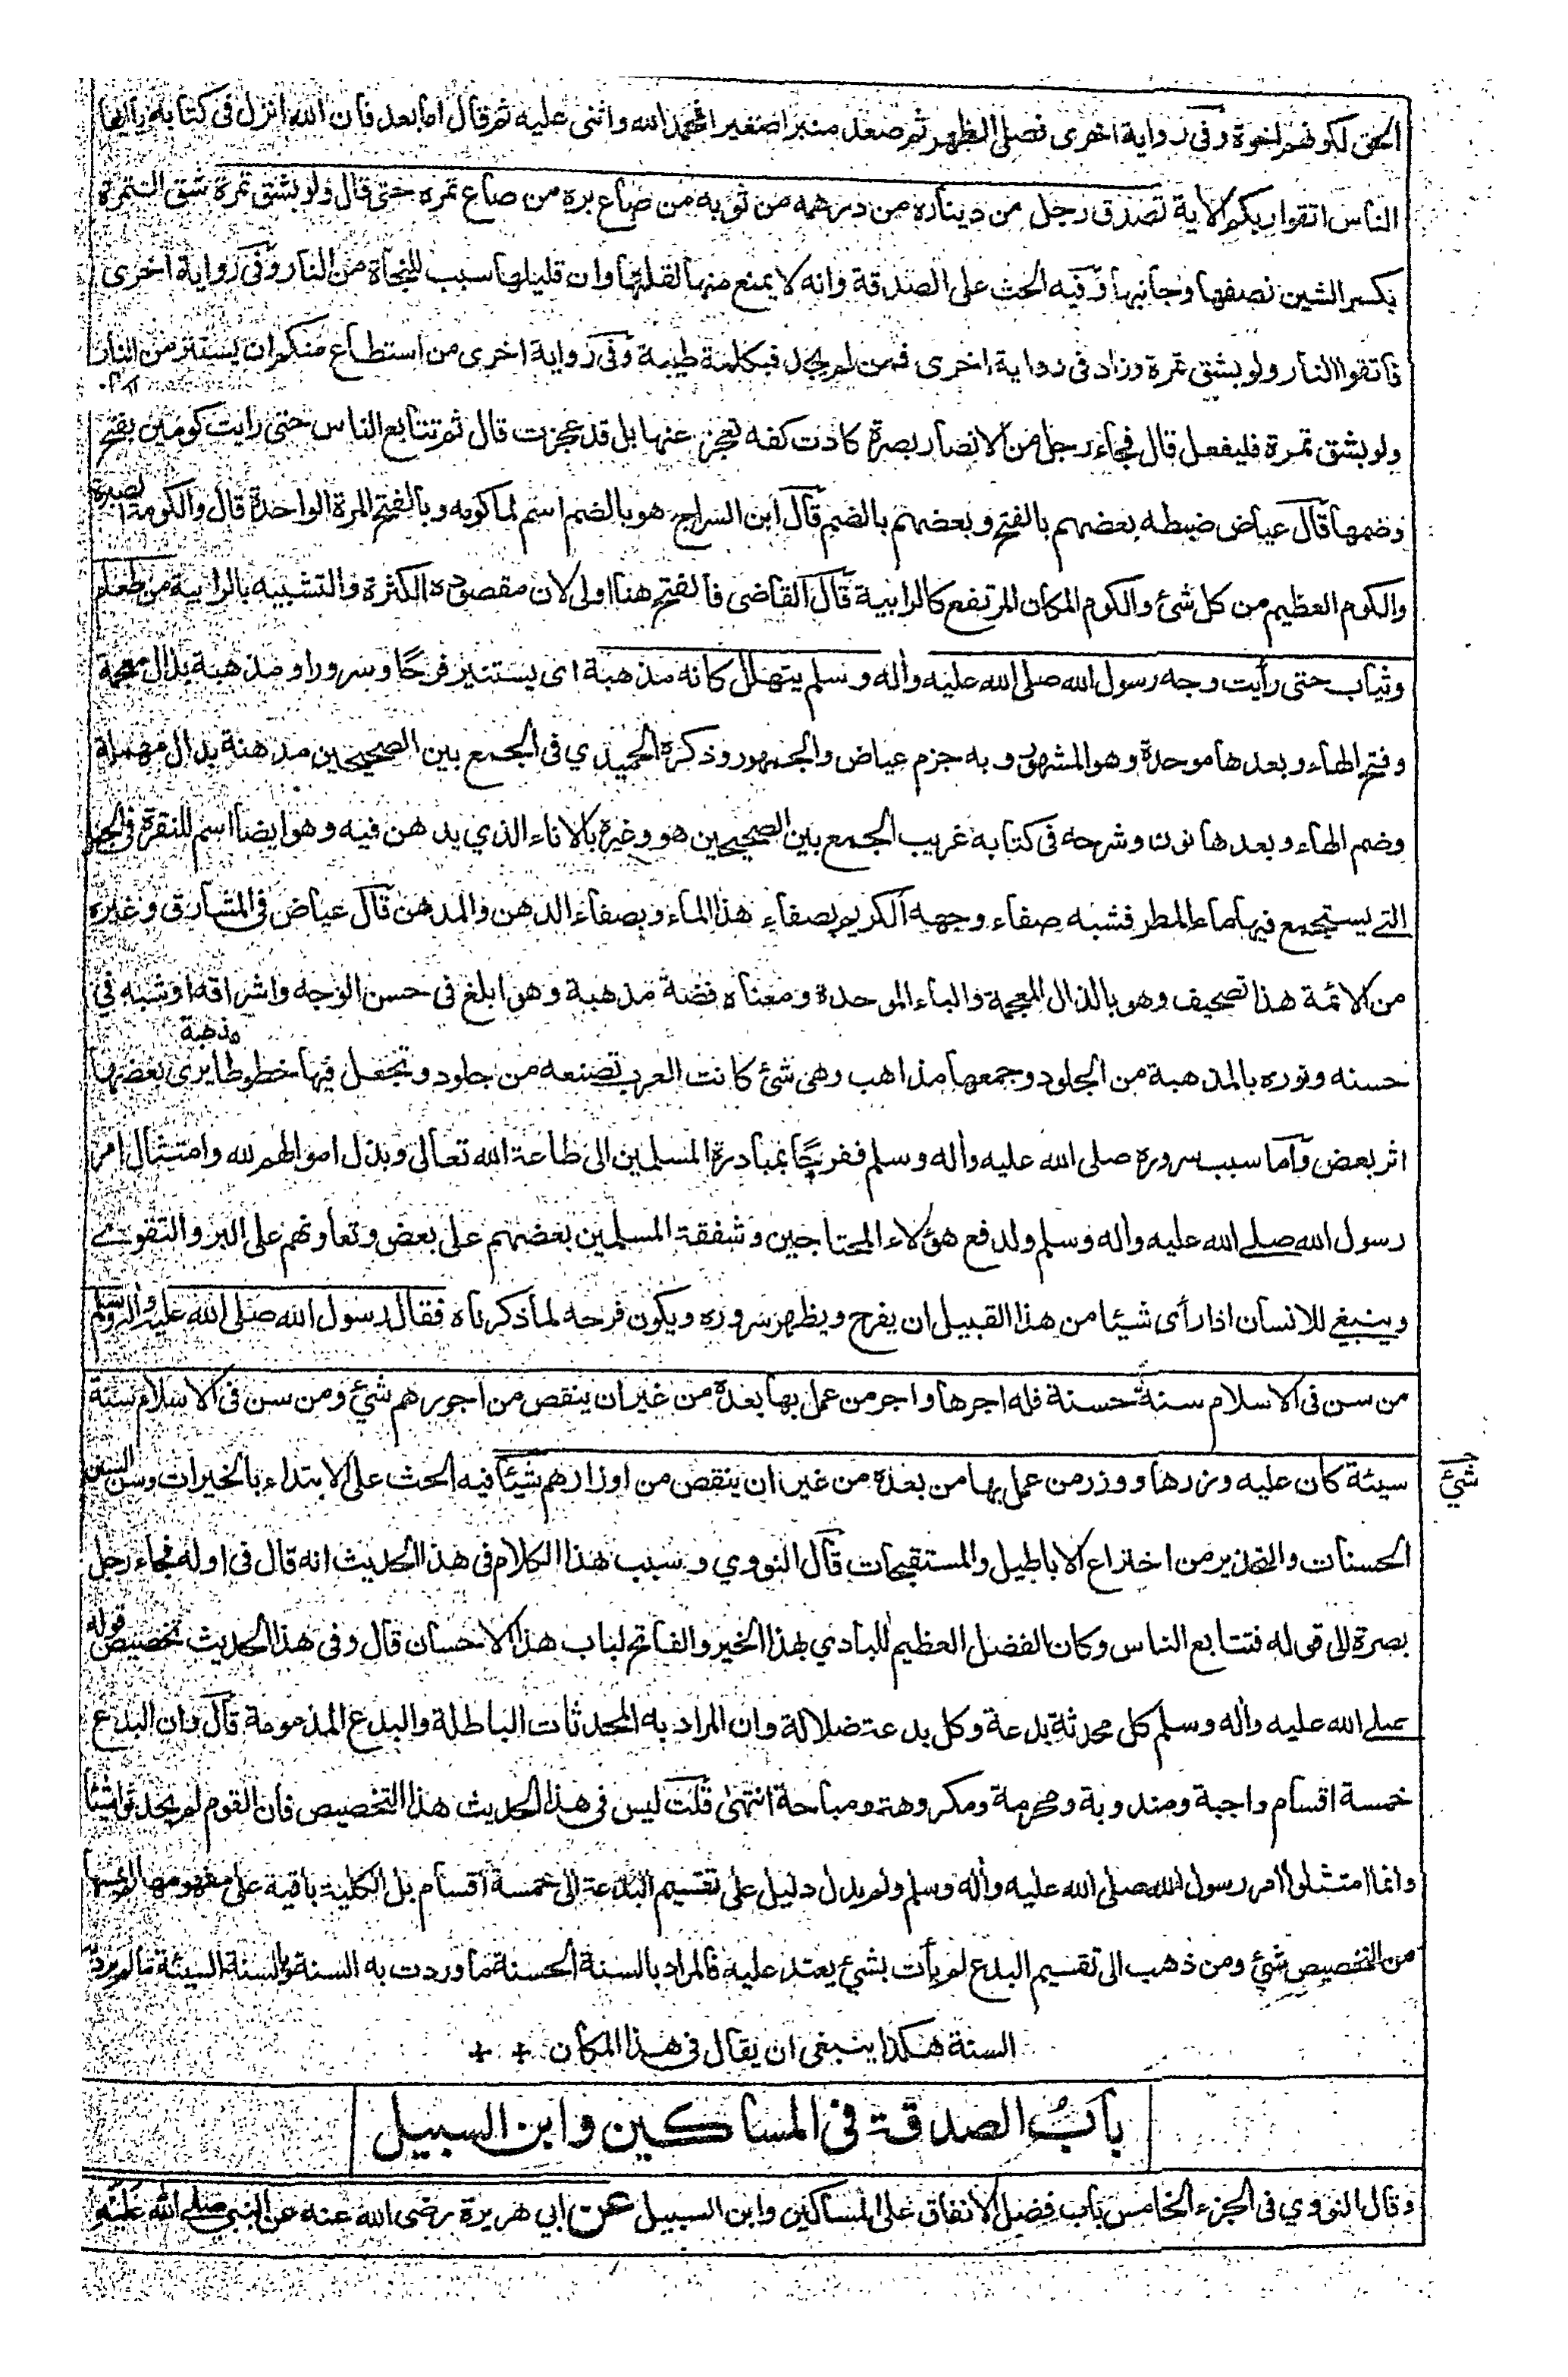 الحق لكونهم اخوة وفى رواية اخرى فصلى الظهر ثم صعد منبرا صغيرا فحمد الله واثنى عليه ثم قال اما بعد فان الله انزل فى كتابه ياايها
الناس اتقوا ربكم الاية تصدق رجل من ديناره من درهمه من ثوبه من صاع بره من صاع تمره حتى قال ولو بشق تمرة شق التمرة
بكسر الشين نصفها وجانبها وفيه الحث على الصدقة وانه لا يمتنع منها لقلتها وان قليلها سبب للنجاة من النار وفى رواية اخرى
فاتقوا النار ولو بشق تمرة وزاد فى رواية اخرى فمن لم يجد فبكلمة طيبة وفى رواية اخرى من استطاع منكم ان يستتر من النار
ولو بشق تمرة فليفعل قال فجاء رجل من الانصار بصرة كادت كفه تعجز عنها بل قد عجزت قال ثم تتابع الناس حتى رايت كومين بفتح
وضمها قال عياض ضبطه بعضهم بالفتح وبعضهم بالضم قال ابن السراج هو بالضم اسم لما كومه وبالفتح المرة الواحدة قال والكومة الصبرة
والكوم العظيم من كل شئ والكوم المكان المرتفع كالرابية قال القاضى فالفتح هنا اولى لان مقصوده الكثرة والتشبيه بالرابية من طعام
وثياب حتى رأيت وجه رسول الله صلى الله عليه وأله وسلم يتهلل كانه مذهبة اى يستنير فرحا وسرورا ومذهبة بذال معجمة
وفتح الهاء وبعدها موحدة وهو المشهور وبه جزم عياض والجمهور وذكره الحميدي فى الجمع بين الصحيحين مدهنة بدال مهملة
وضم الهاء وبعدها نون وشرحه فى كتابه غريب الجمع بين الصحيحين هو وغيره بالاناء الذي يدهن فيه وهو ايضا اسم للنقرة فى الجبل
التي يستجمع فيها ماء المطر فشبه صفاء وجهه الكريم بصفاء هذا الماء وبصفاء الدهن والمدهن قال عياض فى المشارق وغيره
من الائمة هذا تصحيف وهو بالذال المعجمة والباء الموحدة ومعناه فضة مذهبة وهو ابلغ فى حسن الوجه واشراقه او شبه في
مذهبة
حسنه ونوره بالمذهبة من الجلود وجمعها مذاهب وهى شئ كانت العرب تصنعه من جلود وتجعل فيها خطوطا يرى بعضها
اثر بعض وأما سبب سروره صلى الله عليه وأله وسلم ففرحًا بمبادرة المسلمين الى طاعة الله تعالى وبذل اموالهم لله وامتثال امر
رسول الله صلى الله عليه واله وسلم ولدفع هؤلاء المحتاجين وشفقة المسلمين بعضهم على بعض وتعاونهم على البر والتقوى
وينبغي للانسان اذا رأى شيئا من هذا القبيل ان يفرح ويظهر سروره ويكون فرحه لما ذكرناه فقال رسول الله صلى الله عليه واله وسلم
من سن فى الاسلام سنة حسنة فله اجرها واجر من عمل بها بعده من غير ان ينقص من اجورهم شيء ومن سن فى الاسلام سنة
سيئة كان عليه وزرها ووزر من عمل بها من بعده من غير ان ينقص من اوزارهم شيئا فيه الحث على الابتداء بالخيرات وسن السنن
شئ
الحسنات والتحذير من اختراع الاباطيل والمستقبحات قال النووي وسبب هذا الكلام فى هذا الحديث انه قال فى اوله فجاء رجل
بصرة الى قوله فتتابع الناس وكان الفضل العظيم للبادي بهذا الخير والفاتح لباب هذا الاحسان قال وفى هذا الحديث تخصيص قوله
صلى الله عليه وأله وسلم كل محدثة بدعة وكل بدعة ضلالة وان المراد به المحدثات الباطلة والبدع المذمومة قال وان البدع
خمسة اقسام واجبة ومندوبة ومحرمة ومكروهة ومباحة انتهى قلت ليس فى هذا الحديث هذا التخصيص فان القوم لم يحدثوا شيئا
وانما امتثلوا امر رسول الله صلى الله عليه وأله وسلم ولم يدل دليل على تقسيم البدعة الى خمسة أقسام بل الكلية باقية على مفهومها ليس فيها
من التخصيص شئ ومن ذهب الى تقسيم البدع لم يأت بشئ يعتد عليه فالمراد بالسنة الحسنة ما وردت به السنة والسنة السيئة ما لم يرد
السنة هكذا ينبغى ان يقال فى هذا المكان
بابُ الصدقة فى المساكين وابن السبيل
وقال النووي فى الجزء الخامس باب فضل الانفاق على المساكين وابن السبيل عن ابي هريرة رضى الله عنه عن النبي صلى الله عليه